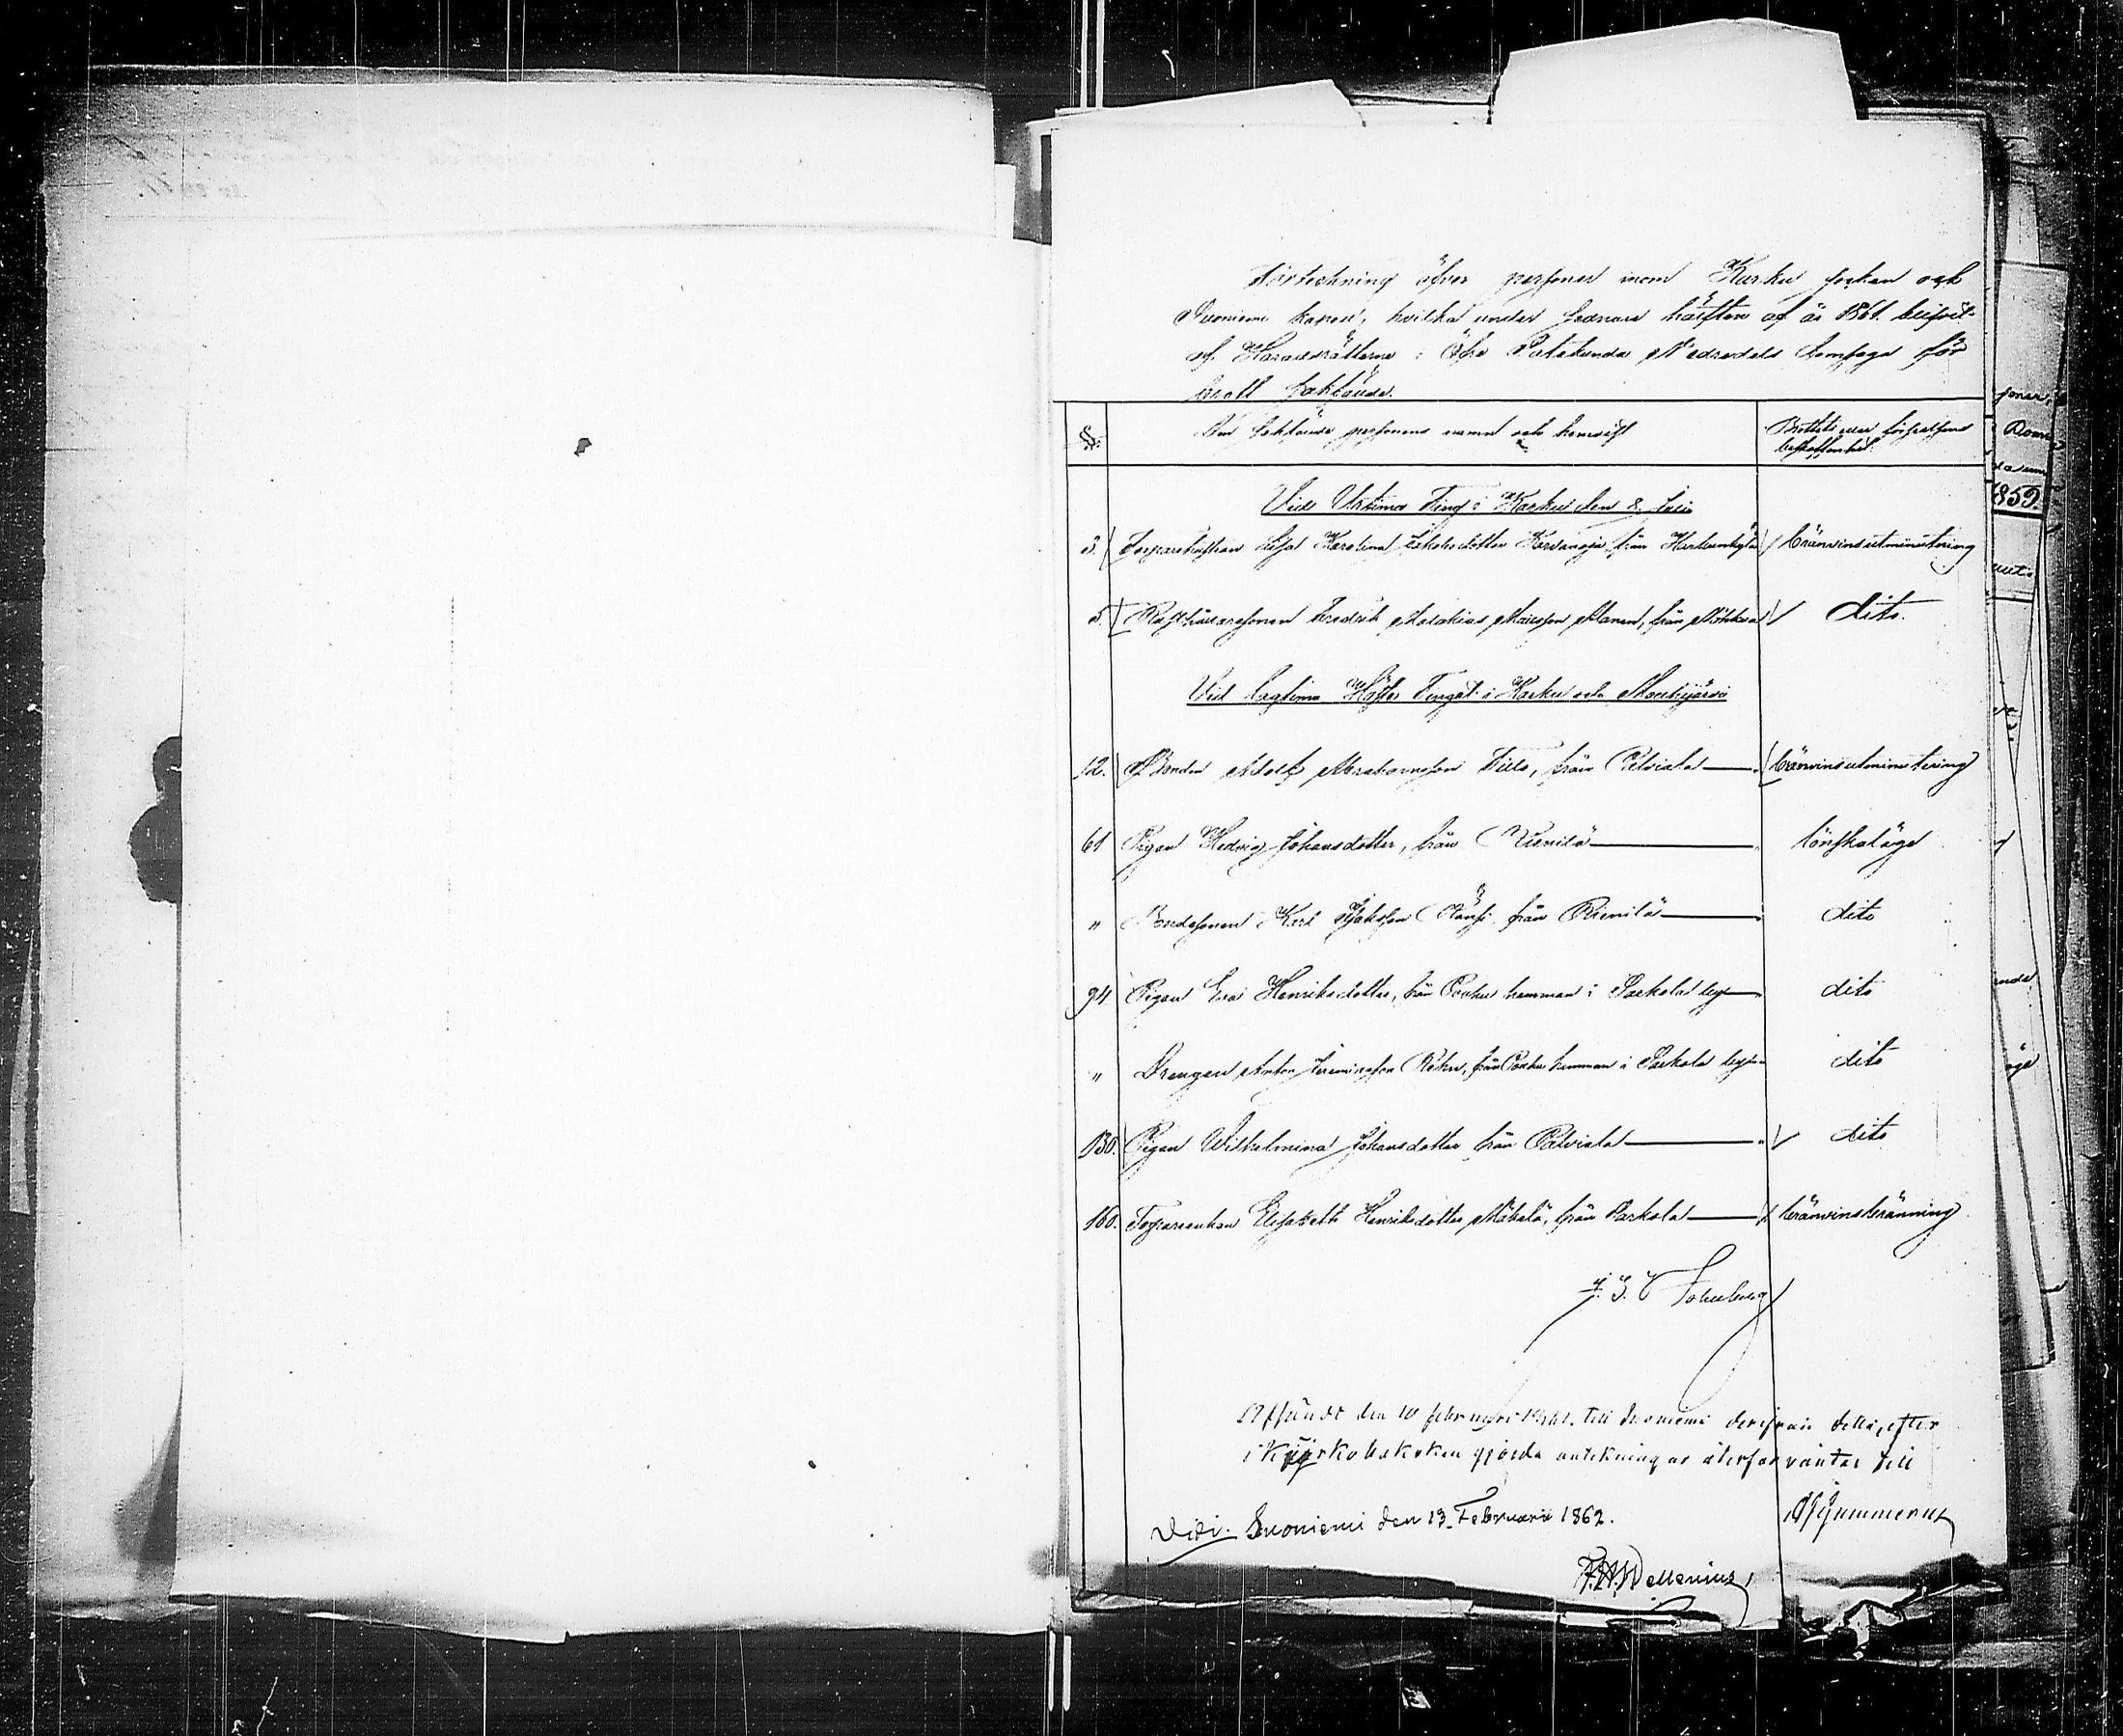 Förteckning öfver personer inom Karku sockn och
Suoniemi kapell, hvilka under sednare hälften af år 1861. blifvit
af Häradsrätterne i Öfre Satakunda Nedredels Domsaga för
brott sakfälde.
§§. Den sakfälde personens namn och hemvist Brottets eller förseelsens beskaffenhet.
Vid Urtima Ting i Karku den 8 Juli
3. Torparehustrun Lisa Karolina Jakobsdotter Karvanoja från Harsunkylä bränvinsutminutering
5. Rusthållaresonen Fredrik Malakias Maisson Alanen, från dito.
Vid lagtima Höste Tinget i Karku och Mouhijärvi
12. Bonden Adolf Abrahamsson Tulo, från Palviala bränvinsutminutering
61 Pigan Hedvig Johansdotter, från Rienilä lönskaläge
" Bondesonen Karl Isaksson från Rienilä dito
94. Pigan Eva Henriksdotter, från hemman i Sarkola by dito
" Drengen Anton Jeremiasson från hemman i Sarkola by dito
130. Pigan Wilhelmina Johansdotter från Palviala dito
160. Torpareenkan Elisabeth Henriksdotter Mäkelä, från Sarkola bränvinsbränning
Afsändt den 10 februari till Suoniemi derifrån detta, efter
i kyrkobokeken gjorda antekningar återförväntas till
Gummerus
Vidi. Suoniemi den 13. Februarii 1862.
F. W. Wallenius